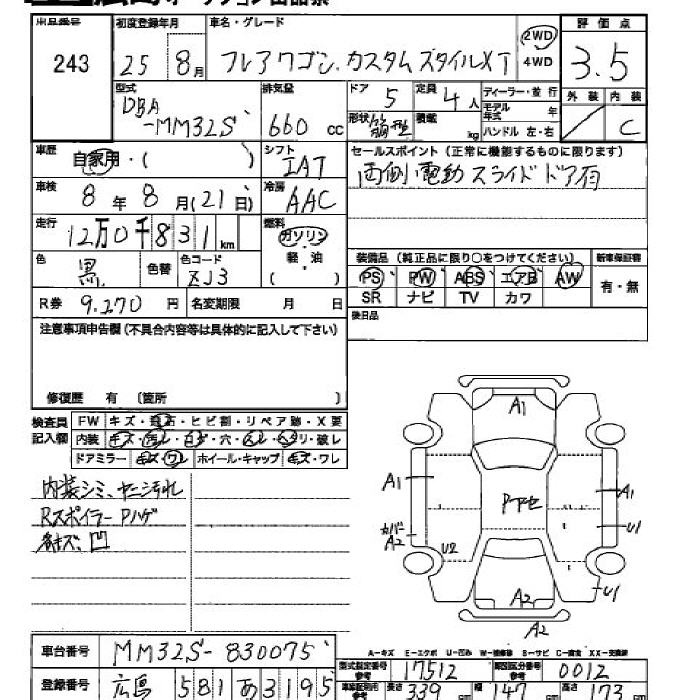 出品番号 初度登録年月 車名・グレード 評価点
243 25 8月 フレアワゴン カスタムスタイルXT 2WD 4WD 3.5
型式 排気量 ドア 定員 ディーラー・並行 外装 内装
DBA-MM32S 660 cc 5 4人 モデル年式 年 C
形状 箱型 積載 kg ハンドル 左・右
車歴 自家用・( ) シフト IAT セールスポイント(正常に機能するものに限ります)
両側電動スライドドア有
車検 8年8月(21日) 冷房 AAC
走行 12万0千831km 燃料 ガソリン
軽・油
( )
装備品(純正品に限り○をつけてください) 新車保証書
色 黒 色替 色コード ZJ3 PS PW ABS エアB AW 有・無
SR ナビ TV カワ
R券 9.270 円 名変期限 月 日
後日品
注意事項申告欄(不具合内容等は具体的に記入して下さい)
修復歴 有 〔箇所 〕
検査員記入欄 FW キズ・飛石・ヒビ割・リペア跡・X要
内装 キズ・汚レ・コゲ・穴・スレ・ヘタリ・破レ
ドアミラー キズ・ワレ ホイール・キャップ キズ・ワレ
内装シミ、ヤニ汚れ
Rスポイラー Pハゲ
各キズ、凹
A1
A1 A1
Pアセ
カバーA2 U1
U2
U1
A2
A2
A-キズ E-エクボ U-凹み W-補修跡 S-サビ C-腐食 XX-交換済
車台番号 MM32S-830075
型式指定番号 17512 類別区分番号 0012
登録番号 広島 581 あ 3195
長さ 339 cm 幅 147 cm 高さ 173 cm